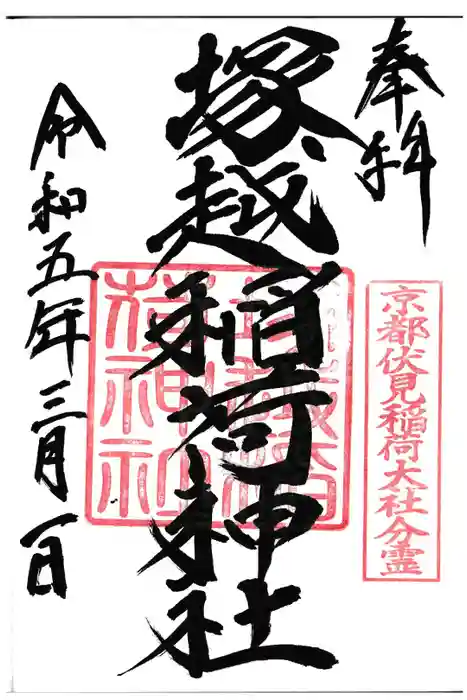 奉拝
京都伏見稲荷大社分霊
塚越稲荷神社
令和五年三月一日